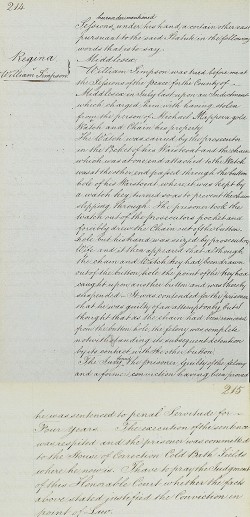 214
hereinaftermentioned
reserved under his hand a certain other case
pursuant to the said Statute in the following
words that is to say.
Middlesex
Regina
v
William Simpson
William Simpson was tried before me at
the Sessions of the Peace for the County of
Middlesex in July last upon an Indictment
which charged him with having stolen
from the person of a
Watch and Chain his property.
The Watch was carried by the prosecutor
in the Pocket of his Waistcoat and the chain
which was at one end attached to the Watch
was at the other end passed through the button
hole of his Waistcoat where it was kept by
a watch key turned so as to prevent the chain
slipping through. The prisoner took the
watch out of the prosecutors pocket and
forcibly drew the Chain out of the button
hole but his hand was seized by prosecutors
Wife and it then appeared that although
the chain and Watch key had been drawn
out of the button hole the point of the key had
caught upon another button and was thereby
suspended. It was contended for the prisoner
that he was guilty of an attempt only but I
thought that as the chain had been removed
from the button hole the felony was complete
notwithstanding its subsequent detention
by its contact with the other button.
The Jury the prisoner Guilty of the felony
and a former conviction having been proved
215
he was sentenced to penal Servitude for
Four Years. The execution of the sentence
was respited and the prisoner was committed
to the House of Correction Cold Bath Fields
where he now is. I have to pray the Judgment
of this Honorable Court whether the facts
above stated justified the Conviction in
point of Law.